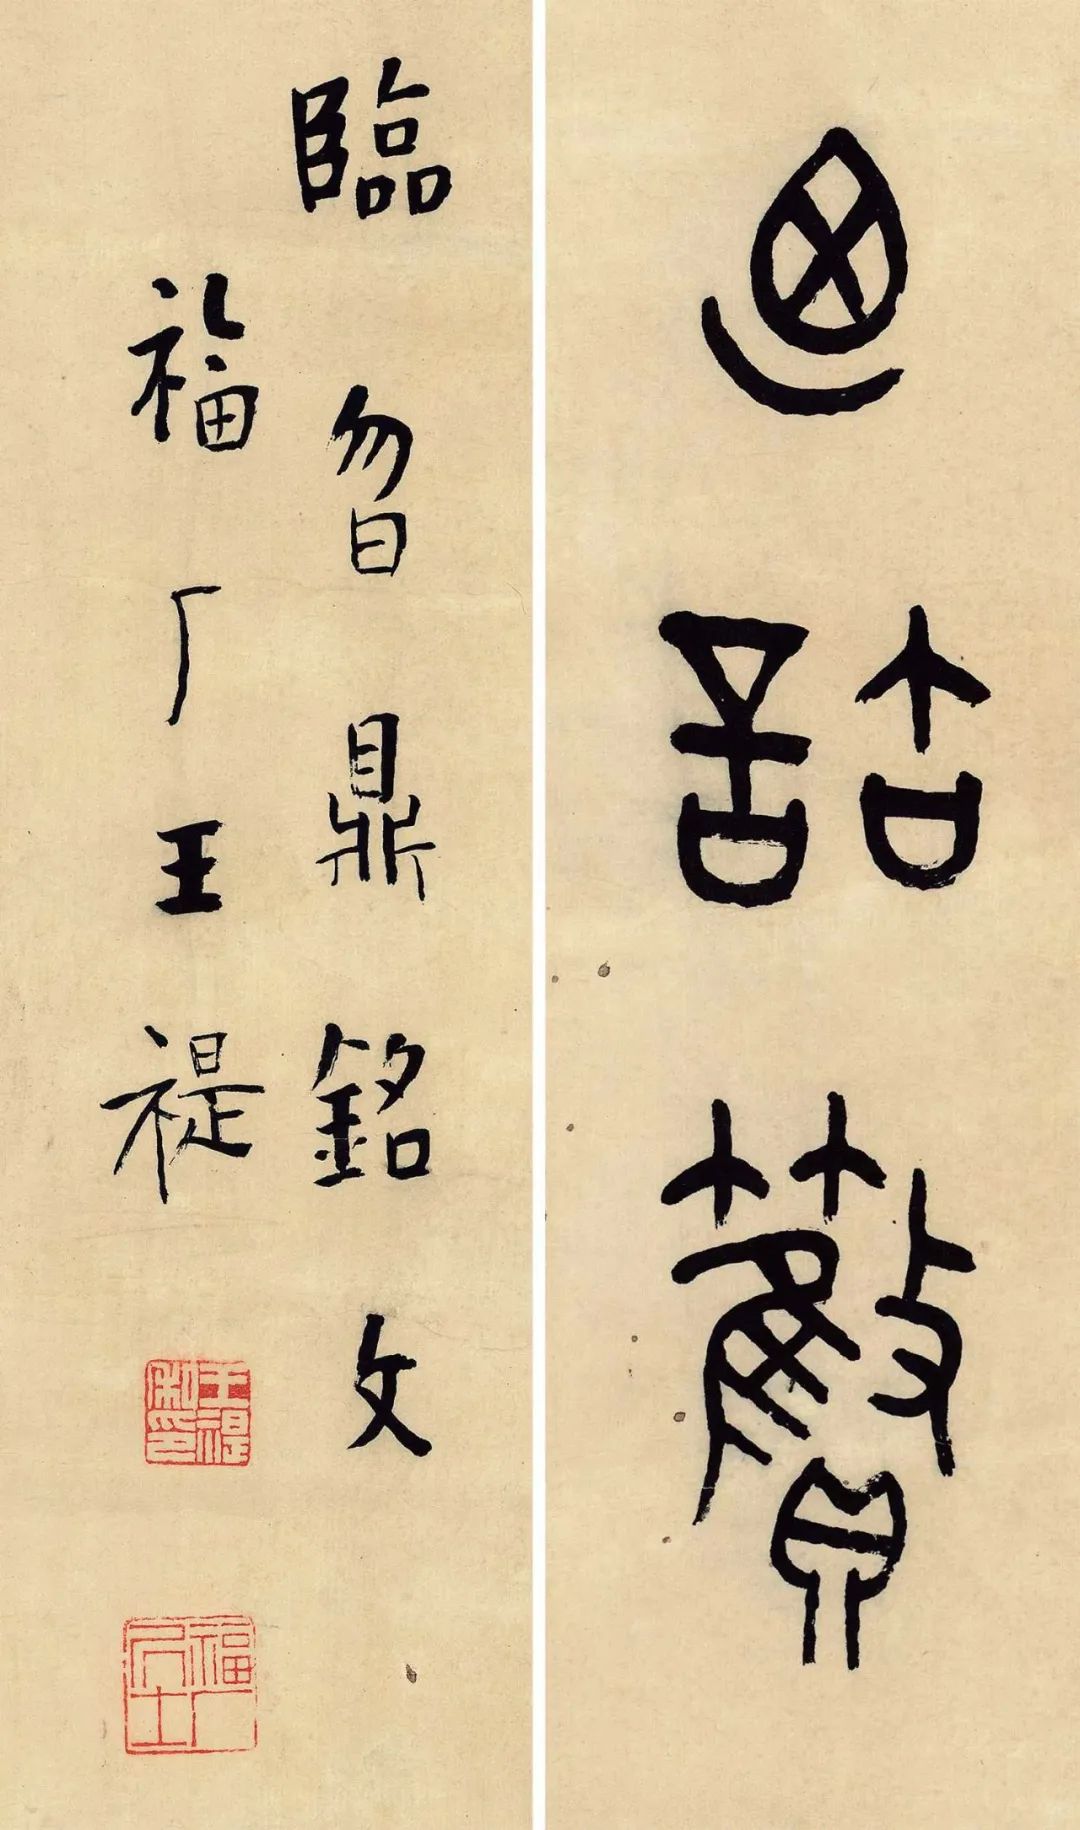 迺
臨曶鼎銘文
福厂王禔
王禔私印
福厂居士